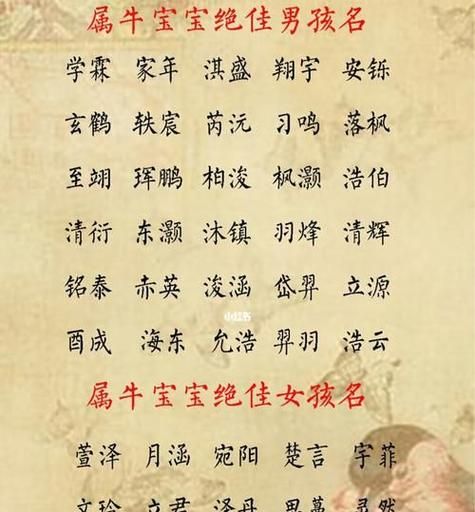 属牛宝宝绝佳男孩名
学霖 家年 淇盛 翔宇 安铄
玄鹤 轶宸 芮沅 习鸣 落枫
至翊 珲鹏 柏浚 枫灏 浩伯
清衍 东灏 沐镇 羽烽 清辉
铭泰 赤英 浚涵 岱羿 立源
小红书
酉成 海东 允浩 羿羽 浩云
属牛宝宝绝佳女孩名
萱泽 月涵 宛阳 楚言 宇菲